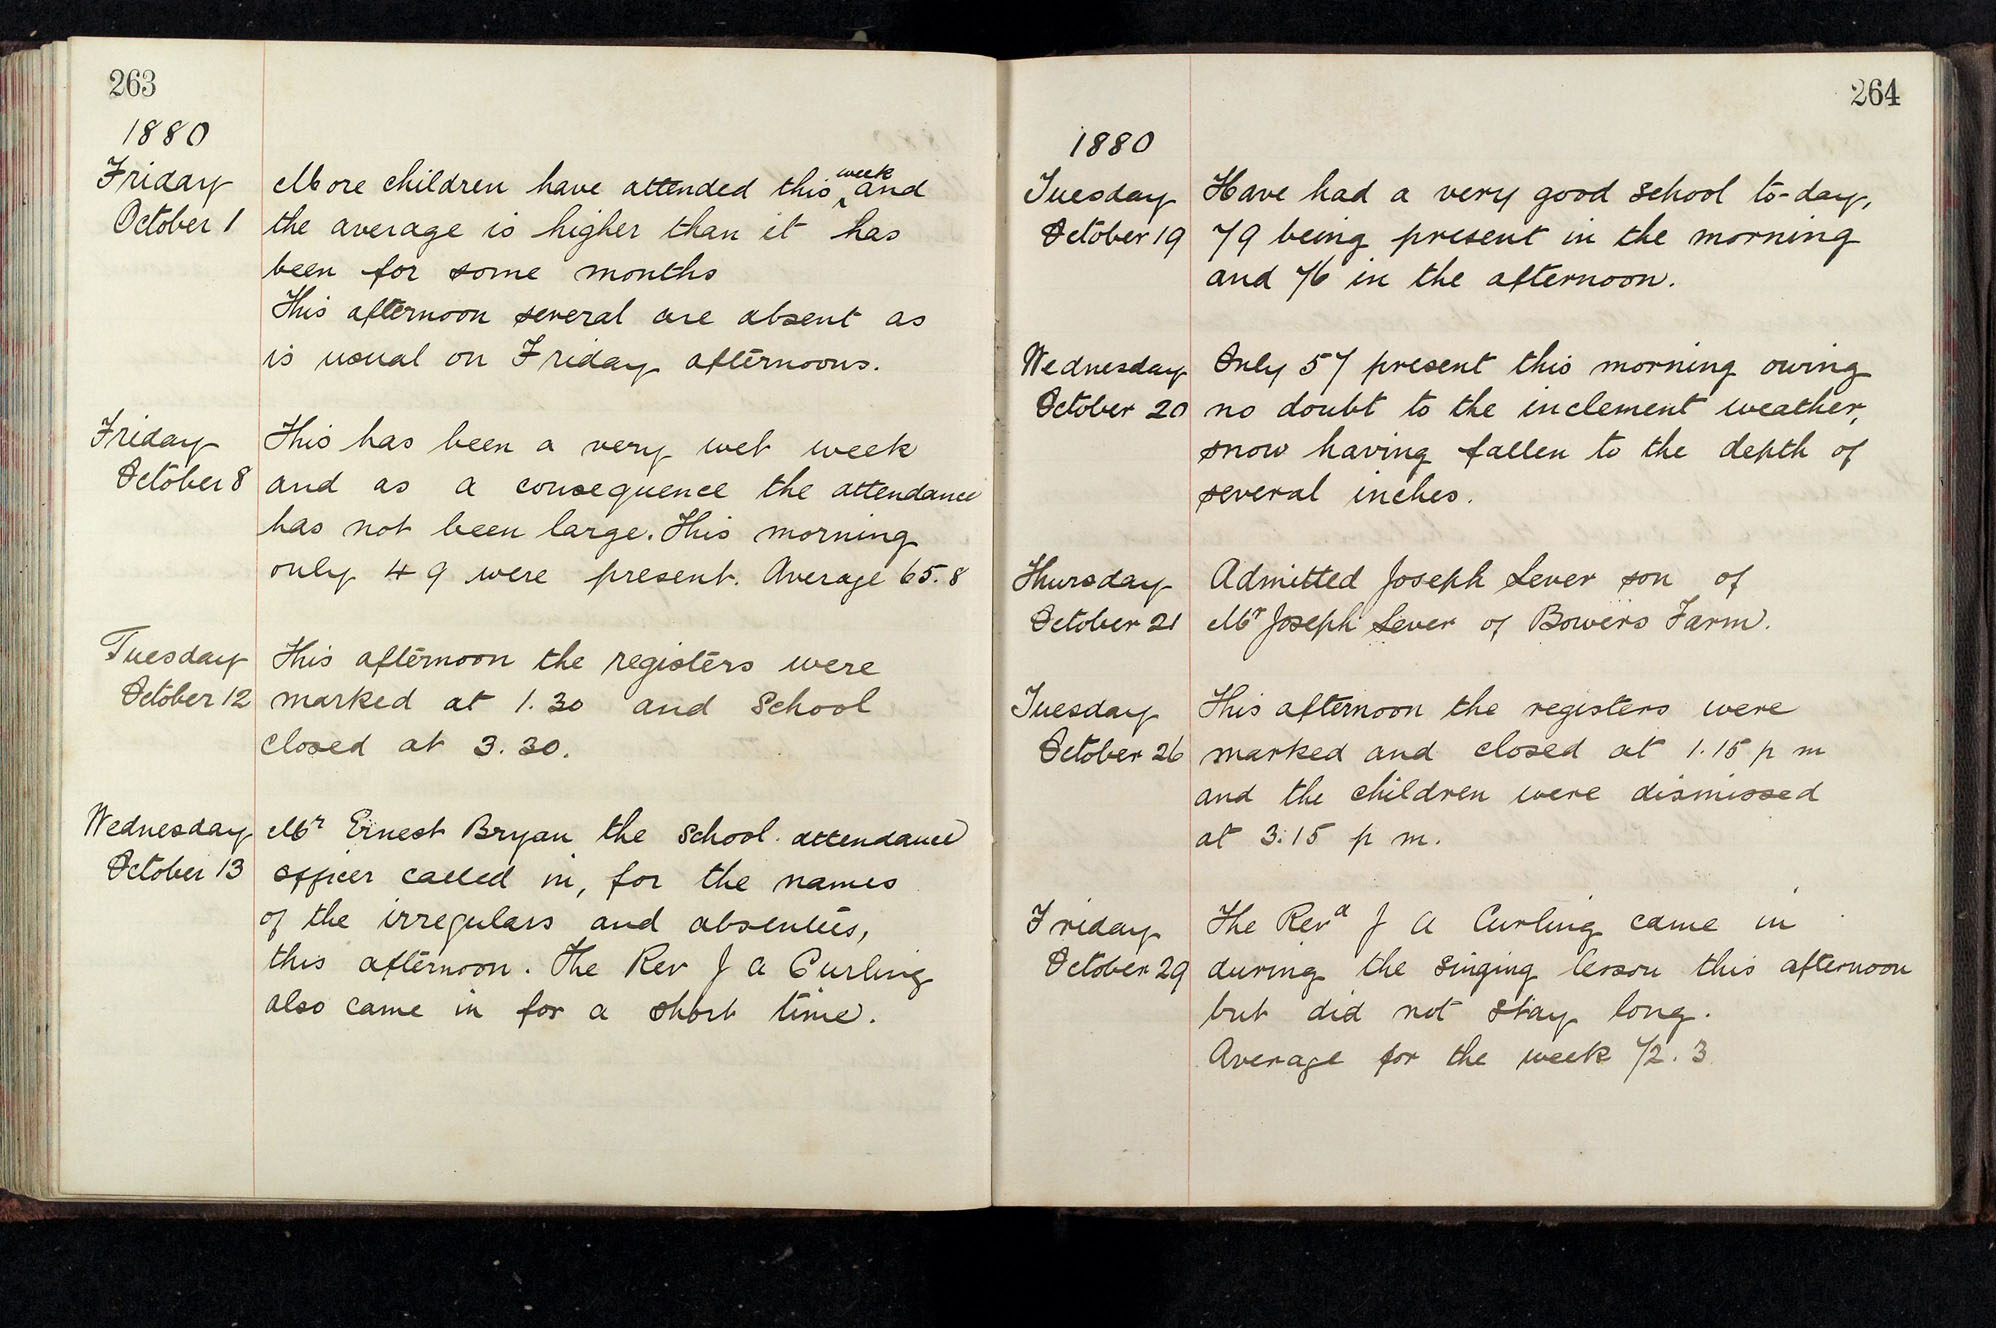 263
1880
Friday
October 1
More children have attended this week and
the average is higher than it has
been for some months
This afternoon several are absent as
is usual on Friday afternoons.
Friday
October 8
This has been a very wet week
and as a consequence the attendance
has not been large. This morning
only 49 were present. Average 65.8
Tuesday
October 12
This afternoon the registers were
marked at 1.30 and School
closed at 3.30.
Wednesday
October 13
Mr Ernest Bryan the School attendance
officer called in, for the names
of the irregulars and absentees,
this afternoon. The Rev J A Curling
also came in for a short time.
264
1880
Tuesday
October 19
Have had a very good school to-day,
79 being present in the morning
and 76 in the afternoon.
Wednesday
October 20
Only 57 present this morning owing
no doubt to the inclement weather,
snow having fallen to the depth of
several inches.
Thursday
October 21
Admitted Joseph Lever son of
Mr Joseph Lever of Bowers Farm.
Tuesday
October 26
This afternoon the registers were
marked and closed at 1.15 p m
and the children were dismissed
at 3.15 p m.
Friday
October 29
The Revd J A Curling came in
during the singing lesson this afternoon
but did not stay long.
Average for the week 72.3